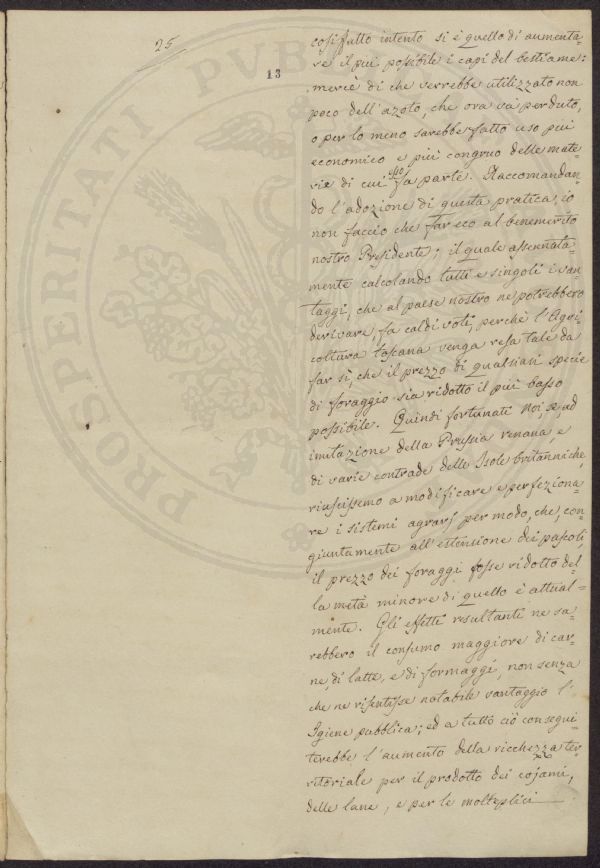 25
13
cosiffatto intento si è quello di aumenta-
re il più possibile i capi del bestiame:
mercè di che verrebbe utilizzato non
poco dell'azoto, che ora và perduto,
o per lo meno sarebbe fatto uso più
economico e più congruo delle mate-
rie di cui esso fa parte. Raccomandan-
do l'adozione di questa pratica, io
non faccio che far eco al benemerito
nostro Presidente; il quale assennata-
mente calcolando tutti e singoli i van-
taggi, che al paese nostro ne potrebbero
derivare, fa caldi voti, perchè l'Agri-
coltura toscana venga resa tale da
far sì, che il prezzo di qualsiasi specie
di foraggio sia ridotto il più basso
possibile. Quindi fortunati noi, se, ad
imitazione della Prussia renana, e
di varie contrade delle Isole britanniche,
riuscissemo a modificare e perfeziona-
re i sistemi agrarj per modo, che, con-
giuntamente all'estensione dei pascoli,
il prezzo dei foraggi fosse ridotto del-
la metà minore di quello è attual-
mente. Gli effetti resultanti ne sa-
rebbero il consumo maggiore di car-
ne, di latte, e di formaggi, non senza
che ne risentisse notabile vantaggio l'
Igiene pubblica; ed a tutto ciò consegui-
terebbe l'aumento della ricchezza ter-
ritoriale per il prodotto dei cojami,
delle lane, e per le molteplici
PROSPERITATI PUB